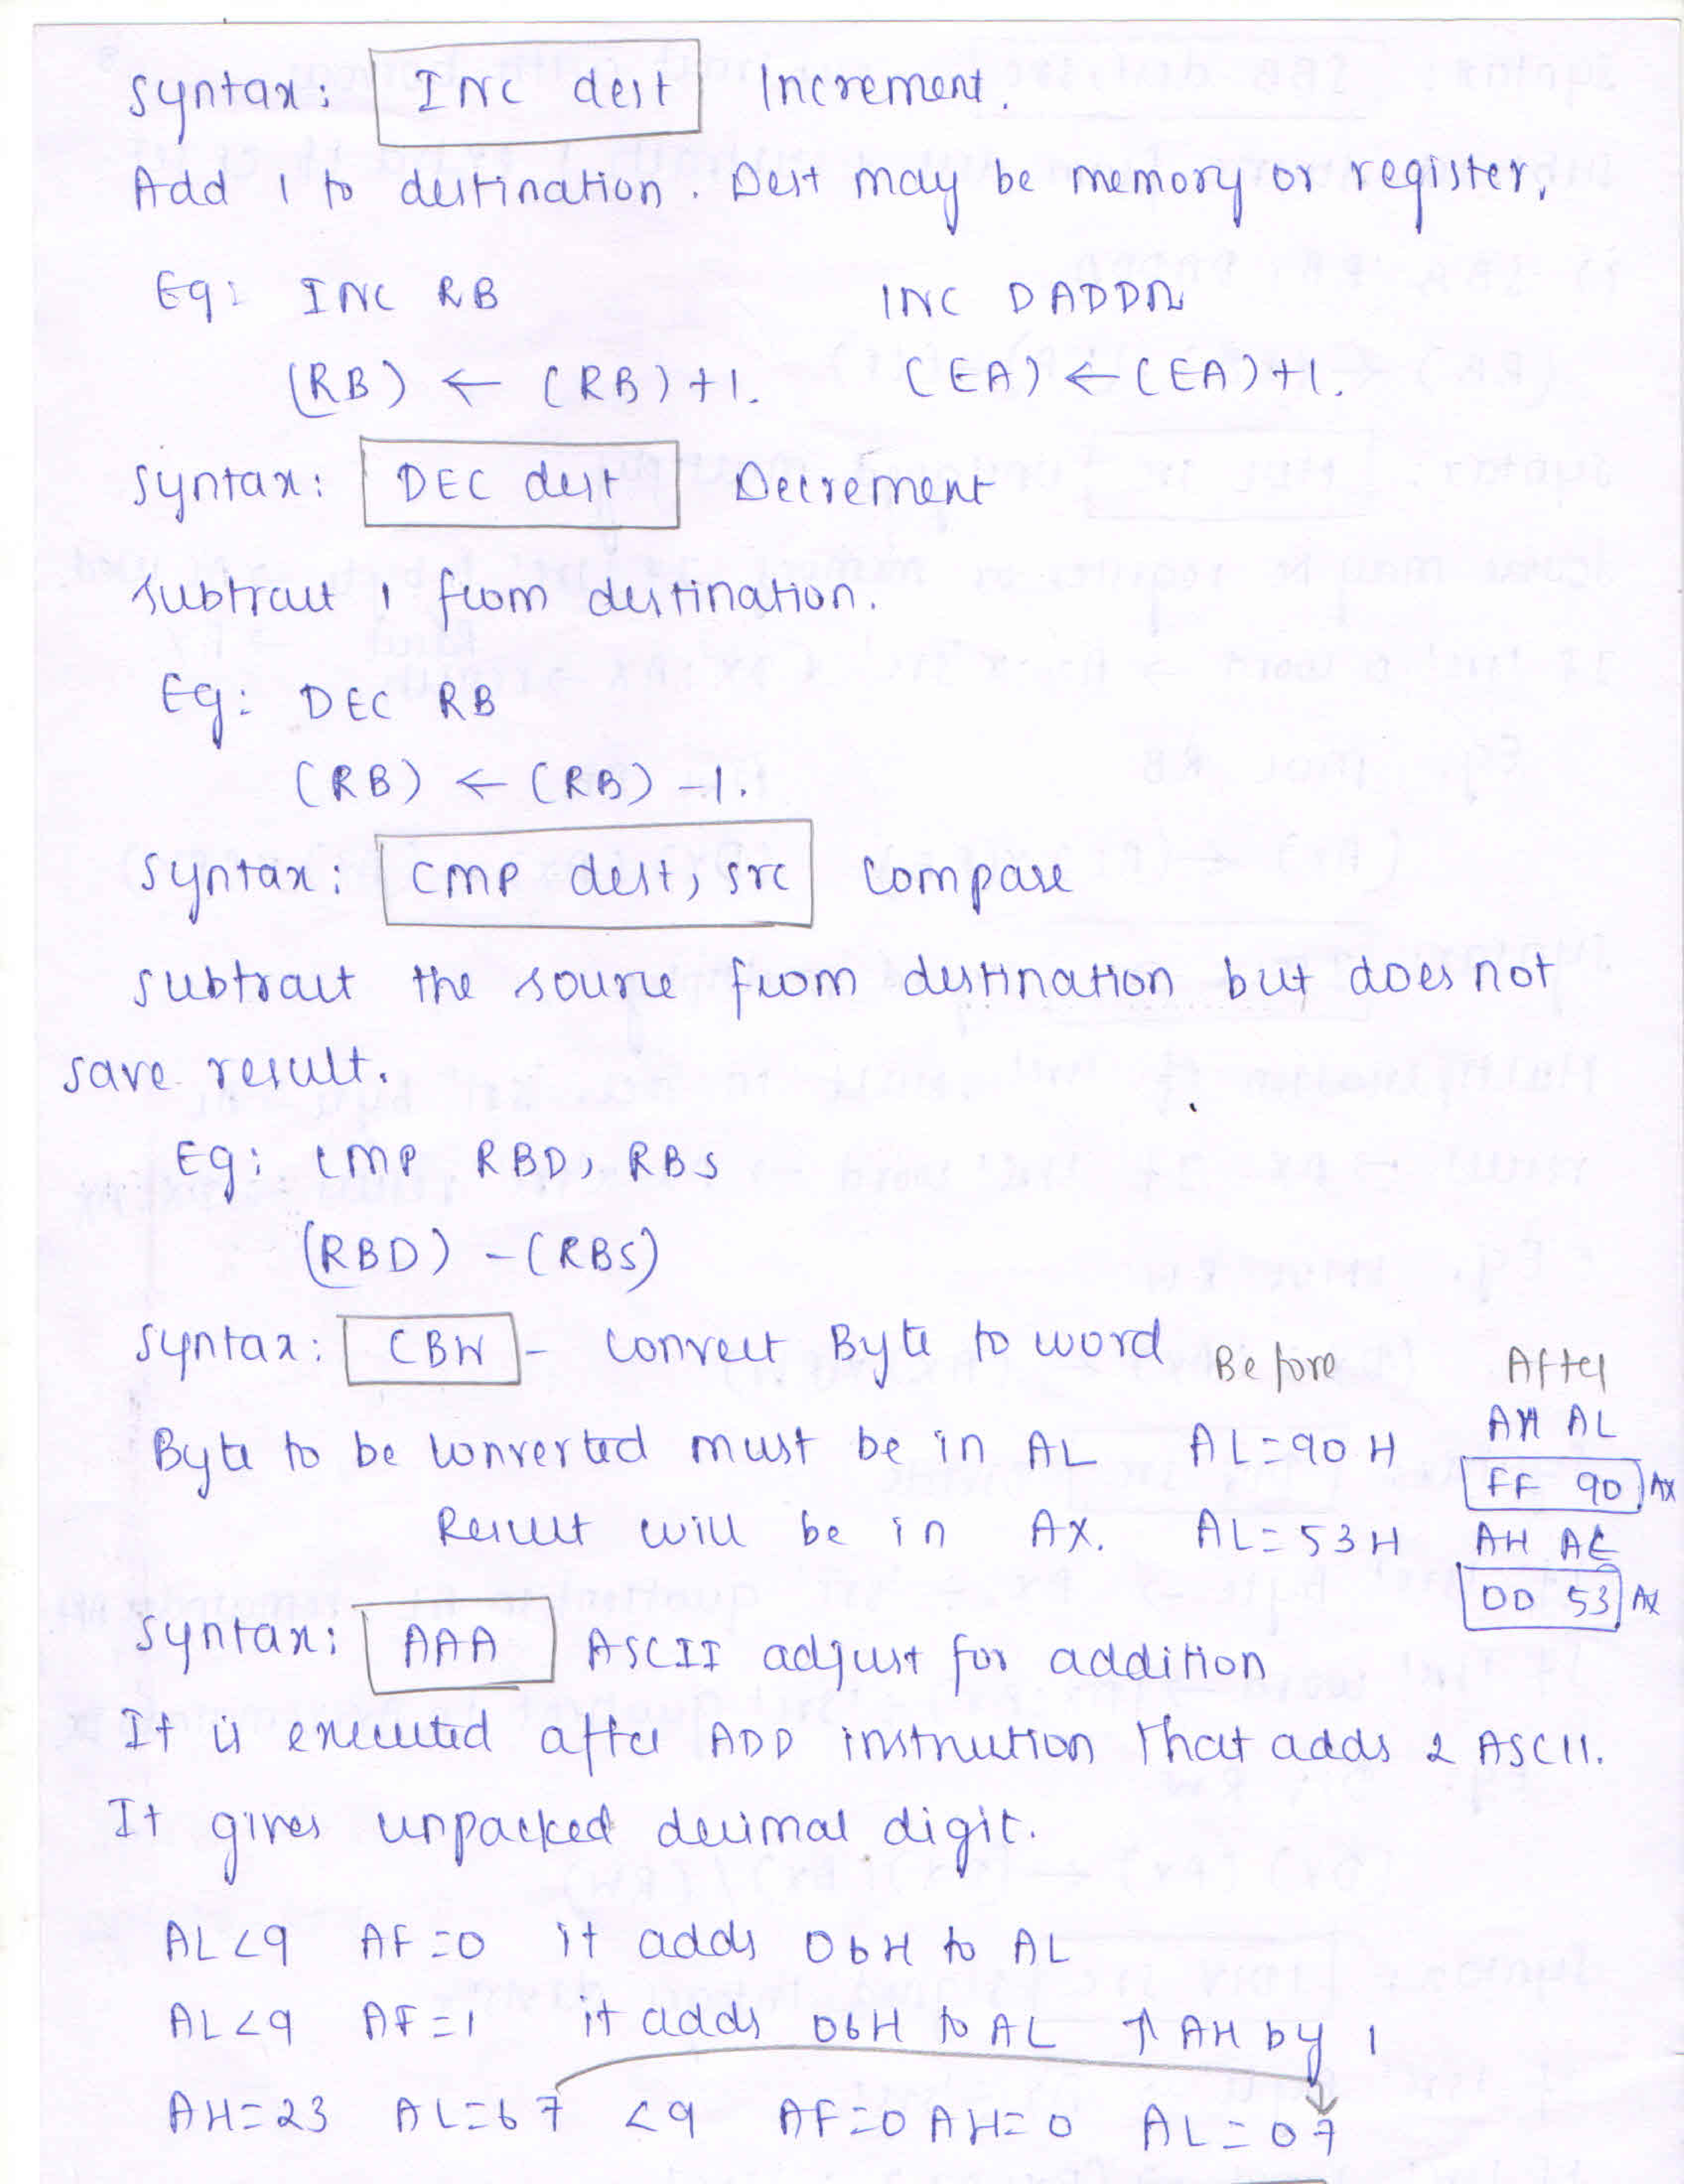 Syntax: INC dest Increment.
Add 1 to destination. Dest may be memory or register.
Eg: INC RB INC DADDR
(RB) ← (RB)+1. (EA) ← (EA)+1.
Syntax: DEC dest Decrement
Subtract 1 from destination.
Eg: DEC RB
(RB) ← (RB) -1.
Syntax: CMP dest, src Compare
Subtract the source from destination but does not
save result.
Eg: CMP RBD, RBS
(RBD) - (RBS)
Syntax: CBW - Convert Byte to word Before After
AH AL
Byte to be converted must be in AL AL=90 H FF 90 AX
Result will be in AX. AL=53H AH AL
00 53 AX
Syntax: AAA ASCII adjust for addition
It is executed after ADD instruction that adds 2 ASCII.
It gives unpacked decimal digit.
AL<9 AF=0 it adds 06H to AL
AL<9 AF=1 it adds 06H to AL ↑ AH by 1
AH=23 AL=67 <9 AF=0 AH=0 AL=07